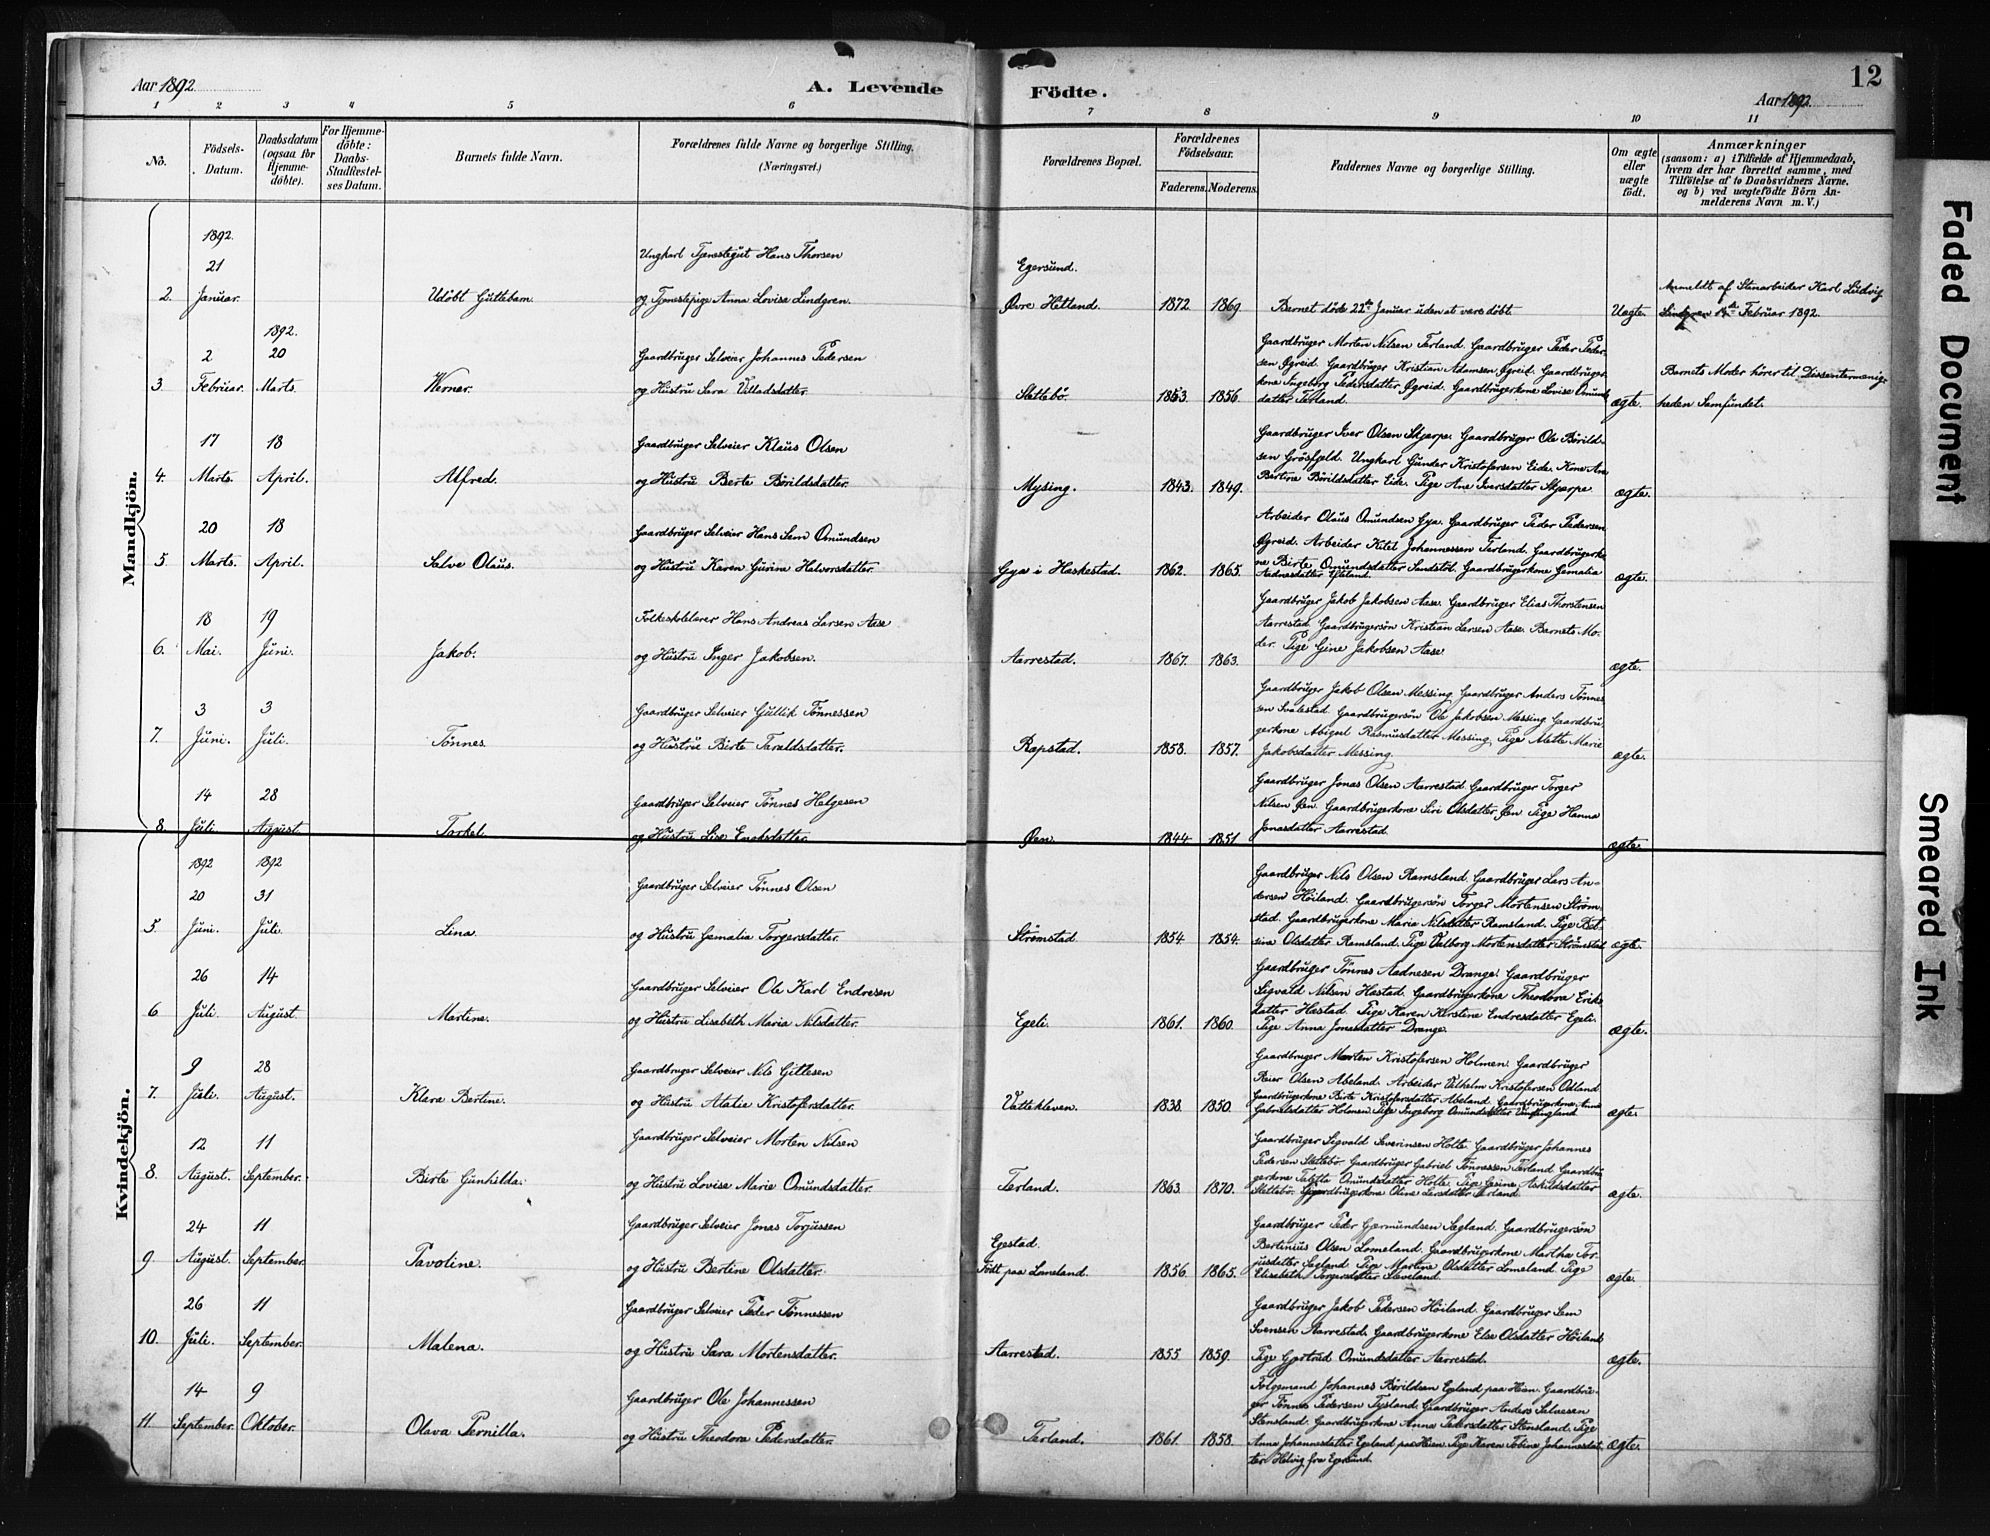 Aar 1892.
A. Levende Födte.
12
Aar 1892.
1 2 3 4 5 6 7 8 9 10 11
No.
Födsels-Datum.
Daabsdatum (ogsaa for Hjemme-döbte).
For Hjemme-döbte: Daabs-Stadfæstel-ses Datum.
Barnets fulde Navn.
Forældrenes fulde Navne og borgerlige Stilling.
(Næringsvei.)
Forældrenes Bopæl.
Forældrenes Födselsaar.
Faderens. Moderens.
Faddernes Navne og borgerlige Stilling.
Om ægte eller uægte födt.
Anmærkninger
(saasom: a) i Tilfælde af Hjemmedaab,
hvem der har forrettet samme, med
Tilföielse af to Daabsvidners Navne.
og b) ved uægtefödte Börn An-
melderens Navn m. V.)
Mandkjön.
1892.
21 Ungkarl Tjenestegut Hans Thorsen Egersund.
2. Januar. Udöbt Guttebarn. og Tjenestepige Anna Lovisa Lindgren. Øvre Hetland. 1872. 1869. Barnet döde 22de Januar uden at være döbt. Uægte.
Anmeldt af Stenarbeider Karl Ludvig
Lindgren 1ste Februar 1892.
1892.
2 20 Gaardbruger Selveier Johannes Pedersen
3. Februar. Marts. Werner. og Hustru Sara Villadsdatter. Slettebö. 1853. 1856. ægte.
Gaardbruger Morten Nilsen Terland. Gaardbruger Peder Peder-
sen Øgreid. Gaardbruger Kristian Adamsen Øgreid. Gaardbruger-
kone Ingeborg Pedersdatter Øgreid. Gaardbrugerkone Lovise Omunds
datter Terland.
Barnets Moder hörer til Dissentermenig-
heden Samfundet.
17 18 Gaardbruger Selveier Klaus Olsen
4. Marts. April. Alfred. og Hustru Berte Börildsdatter. Mysing. 1843. 1849. ægte.
Gaardbruger Iver Olsen Skjerpe. Gaardbruger Ole Börild-
sen Grösfjeld. Ungkarl Gunder Kristofersen Eide. Kone Ane
Bertine Börildsdatter Eide. Pige Ane Iversdatter Skjerpe
20 18 Gaardbruger Selveier Hans Sem Omundsen
5. Marts. April. Salve Olaus. og Hustru Karen Gurine Helvorsdatter. Gya i Heskestad. 1862. 1865. ægte.
Arbeider Olaus Omundsen Gya. Gaardbruger Peder Pedersen
Øgreid. Arbeider Kitel Johannessen Terland. Gaardbrugerko
ne Birte Omundsdatter Sandstöl. Gaardbrugerkone Gemalia
Aadnesdatter Efteland.
18 19 Folkeskolelærer Hans Andreas Larsen Aase
6. Mai. Juni. Jakob. og Hustru Inger Jakobsen. Aarrestad. 1867. 1863. ægte.
Gaardbruger Jakob Jakobsen Aase. Gaardbruger Elias Thorstensen
Aarrestad. Gaardbrugersön Kristian Larsen Aase. Barnets Mo-
der. Pige Gine Jakobsen Aase.
3 3 Gaardbruger Selveier Gullik Tönnessen
7. Juni. Juli. Tönnes. og Hustru Birte Taraldsdatter. Rapstad. 1858. 1857. ægte.
Gaardbruger Jakob Olsen Messing. Gaardbruger Anders Tönnes
sen Svalestad. Gaardbrugersön Ole Jakobsen Messing. Gaardbru
gerkone Abigael Rasmusdatter Messing. Pige Mette Marie
Jakobsdatter Messing.
14 28 Gaardbruger Selveier Tönnes Helgesen
8. Juli. August. Torkel. og Hustru Lise Enoksdatter. Øen. 1844. 1851. ægte.
Gaardbruger Jonas Olsen Aarrestad. Gaardbruger Torger
Nilsen Øen. Gaardbrugerkone Siri Olsdatter Øen. Pige Hanna
Jonasdatter Aarrestad.
Kvindekjön.
1892 1892
20 31 Gaardbruger Selveier Tönnes Olsen
5 Juni. Juli. Lina. og Hustru Gemalia Torgersdatter. Strömstad 1854. 1854. ægte.
Gaardbruger Nils Olsen Ramsland. Gaardbruger Lars An-
dersen Höiland. Gaardbrugersön Torger Mortensen Ström-
stad. Gaardbrugerkone Maria Nilsdatter Ramsland. Pige Bet-
sine Olsdatter Ramsland. Pige Valborg Mortensdatter Strömstad
26 14 Gaardbruger Selveier Ole Karl Endresen
6 Juli. August. Martine. og Hustru Lisabeth Maria Nilsdatter. Egeli. 1861. 1860. ægte.
Gaardbruger Tönnes Aadnesen Drange. Gaardbruger
Sigvald Nilsen Hæstad. Gaardbrugerkone Theodora Eriks
datter Hæstad. Pige Karen Kirstine Endresdatter Egeli.
Pige Anna Jonasdatter Drange.
9 28 Gaardbruger Selveier Nils Gitlesen
7. Juli. August. Klara Bertine. og Hustru Atalie Kristofersdatter. Vatteklaven. 1838. 1850. ægte.
Gaardbruger Morten Kristofersen Holmen. Gaardbruger
Reier Olsen Abeland. Arbeider Vilhelm Kristofersen Odland
Gaardbrugerkone Birte Kristofersdatter Abeland. Gaardbrugerkone Anna
Gabrielsdatter Holmen. Pige Ingeborg Omundsdatter
12 11 Gaardbruger Selveier Morten Nilsen
8. August. September. Birte Gunhilda. og Hustru Lovise Marie Omundsdatter. Terland. 1863. 1870. ægte.
Gaardbruger Sigvald Severinsen Holte. Gaardbruger Johannes
Pedersen Slettebö. Gaardbruger Gabriel Tönnessen Terland. Gaardbru
gerkone Talette Omundsdatter Holte. Pige Gesine Askildsdatter
Slettebö. Gaardbrugerkone Oline Larsdatter Terland.
24 11 Gaardbruger Selveier Jonas Torjussen Egestad.
9. August. September. Pavoline. og Hustru Bertine Olsdatter. Födt paa Lomeland. 1856. 1865. ægte.
Gaardbruger Peder Gjermundsen Sægland. Gaardbrugersön
Bertinius Olsen Lomeland. Gaardbrugerkone Martha Tor-
jusdatter Sægland. Pige Martine Olsdatter Lomeland. Pige
Elisabeth Torgersdatter Leveland.
26 11 Gaardbruger Selveier Peder Tönnessen
10. Juli. September. Malena. og Hustru Sara Mortensdatter. Aarrestad. 1855 1859. ægte.
Gaardbruger Jakob Pedersen Höiland. Gaardbruger Sem
Svensen Aarrestad. Gaardbrugerkone Else Olsdatter Höiland
Pige Gjertrud Omundsdatter Aarrestad.
14 9 Gaardbruger Ole Johannessen
11. September. Oktober. Olava Pernilla. og Hustru Theodora Pedersdatter. Terland. 1861. 1858. ægte.
Folgemand Johannes Börildsen Egeland paa Heien. Gaardbru-
ger Tönnes Pedersen Tysland. Gaardbruger Anders Salvesen
Stensland. Gaardbrugerkone Anna Pedersdatter Stensland. Pige
Anna Johannesdatter Egeland paa Heien. Pige Karen Tobine Johannesdat-
ter Helvig fra Egersund.
Faded Document
Smeared Ink